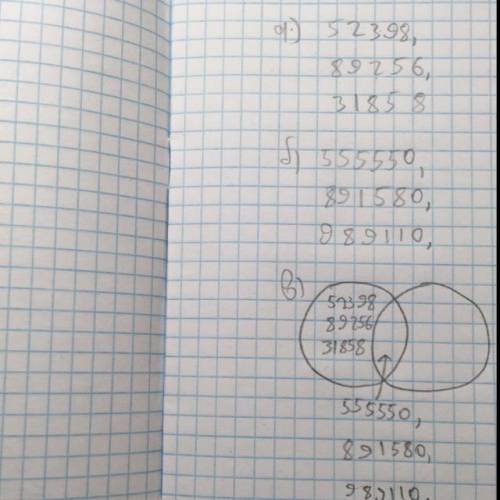 а) 52398,
89256,
31858
б) 555550,
891580,
989110,
в)
52398
89256
31858
555550,
891580,
989110,